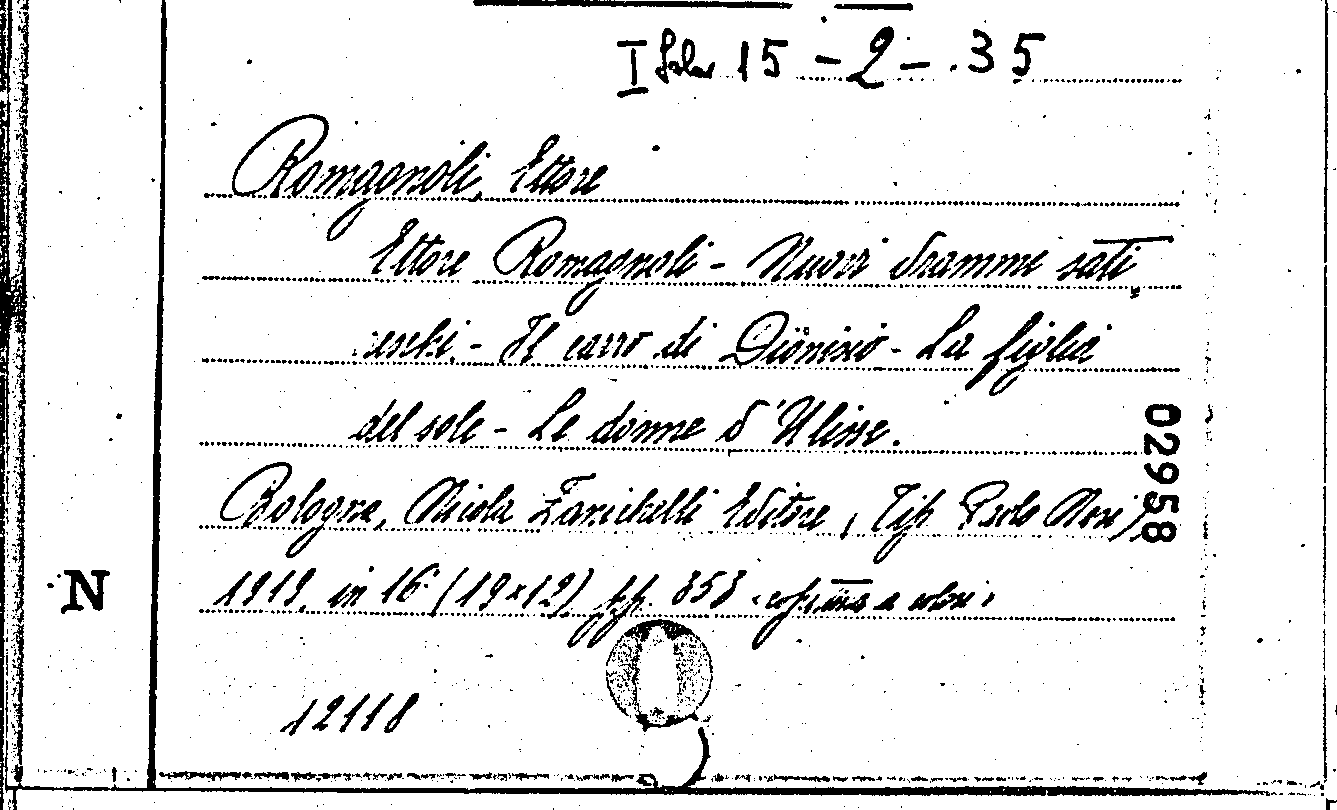 I Sala 15 - 2 - . 35
Romagnoli, Ettore
Ettore Romagnoli - Nuovi drammi sati,
reschi. - Il carro di Dioniso - La figlia
del sole - Le donne d'Ulisse.
02958
Bologna, Nicola Zanichelli Editore, (Tip. Paolo Neri)
1919. in 16° (19×12) pp. 353 a colori
N
12118